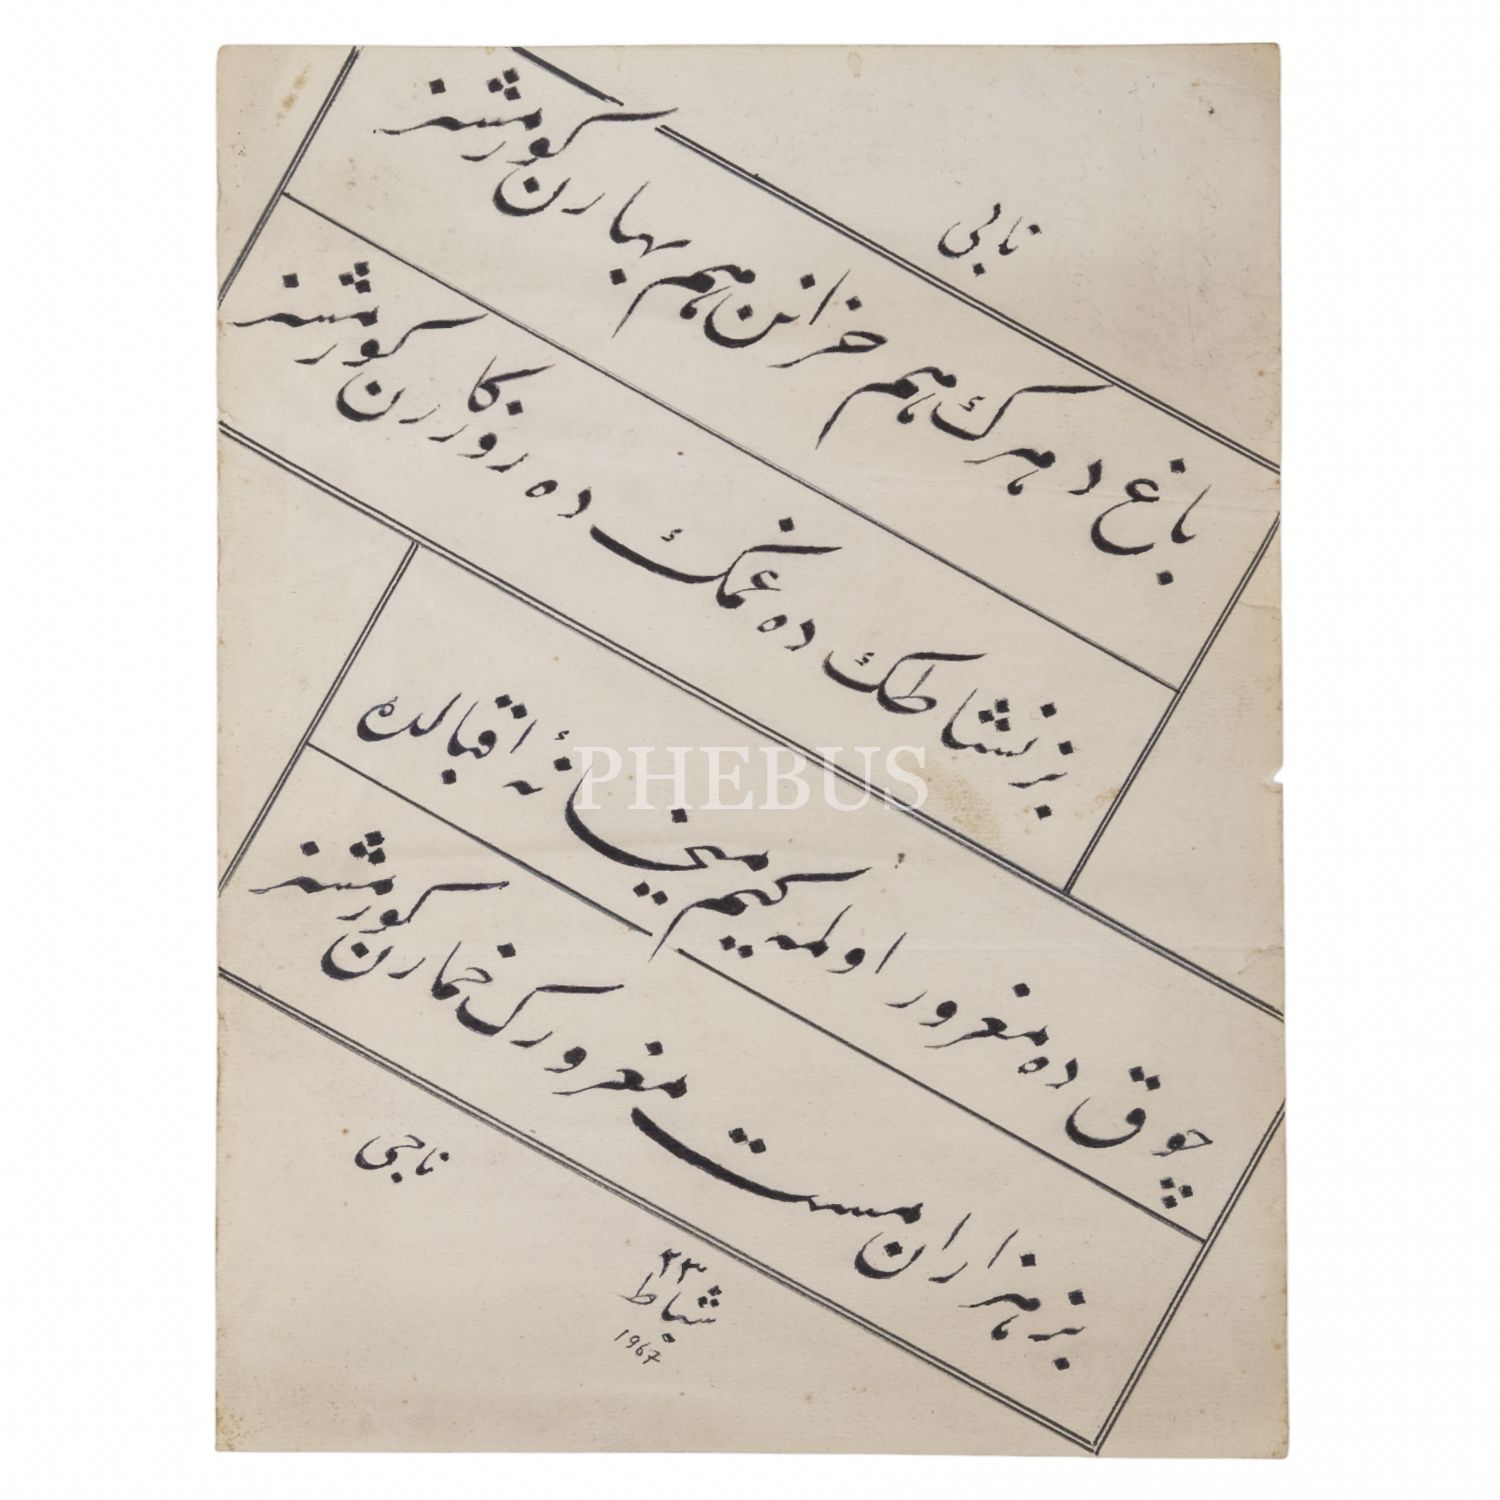 نابی
باغ دهرك هم خزانن هم بهارن كورمشز
بز نشاطك ده غمك ده روزكارن كورمشز
چوق ده مغرور اولمه كیم میخانهٔ اقبالده
بز هزاران مست مغرورك خمارن كورمشز
ناجی
٢٣
شباط
1967
PHEBUS